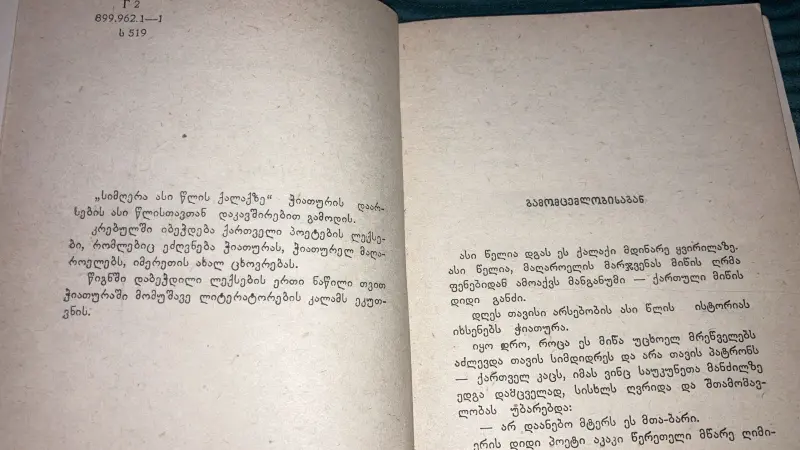 Г 2
899.962.1—1
ს 519
„სიმღერა ასი წლის ქალაქზე“ ჭიათურის დაარ-
სების ასი წლისთავთან დაკავშირებით გამოდის.
კრებულში იბეჭდება ქართველი პოეტების ლექსე-
ბი, რომლებიც ეძღვნება ჭიათურას, ჭიათურელ მაღა-
როელებს, იმერეთის ახალ ცხოვრებას.
წიგნში დაბეჭდილი ლექსების ერთი ნაწილი თვით
ჭიათურაში მომუშავე ლიტერატორების კალამს ეკუთ-
ვნის.
გამომცემლობისაგან
ასი წელია დგას ეს ქალაქი მდინარე ყვირილაზე.
ასი წელია, მაღაროელის მარჯვენას მიწის ღრმა
ფენებიდან ამოაქვს მანგანუმი — ქართული მიწის
დიდი განძი.
დღეს თავისი არსებობის ასი წლის ისტორიას
იხსენებს ჭიათურა.
იყო დრო, როცა ეს მიწა უცხოელ მრეწველებს
აძლევდა თავის სიმდიდრეს და არა თავის პატრონს
— ქართველ კაცს, იმას ვინც საუკუნეთა მანძილზე
ედგა დამცველად, სისხლს ღვრიდა და შთამომავ-
ლობას უბარებდა:
— არ დაანებო მტერს ეს მთა-ბარი.
ერის დიდი პოეტი აკაკი წერეთელი მწარე ღიმი-